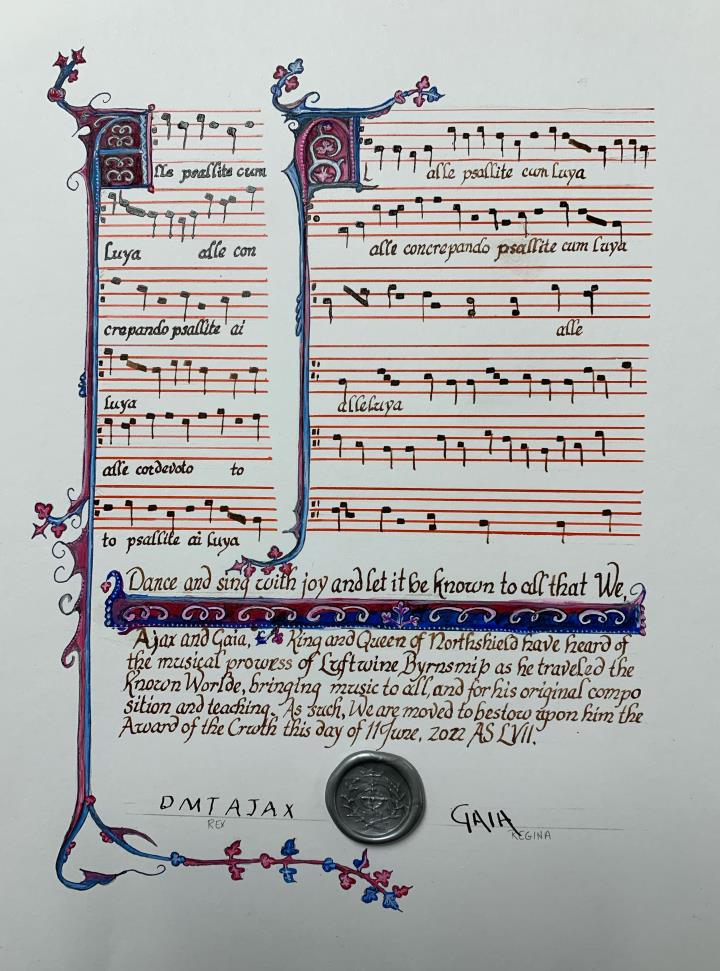 Alle psallite cum
luya alle con
crepando psallite ai
luya
alle cordevoto to
to psallite ai luya
alle psallite cum luya
alle concrepando psallite cum luya
alle
alleluya
Dance and sing with joy and let it be known to all that We,
Ajax and Gaia, King and Queen of Northshield have heard of
the musical prowess of Lyftwine Byrnsmiþ as he traveled the
Known Worlde, bringing music to all, and for his original compo
sition and teaching. As such, We are moved to bestow upon him the
Award of the Crwth this day of 11 June, 2022 AS LVII.
DMT AJAX
REX
GAIA
REGINA